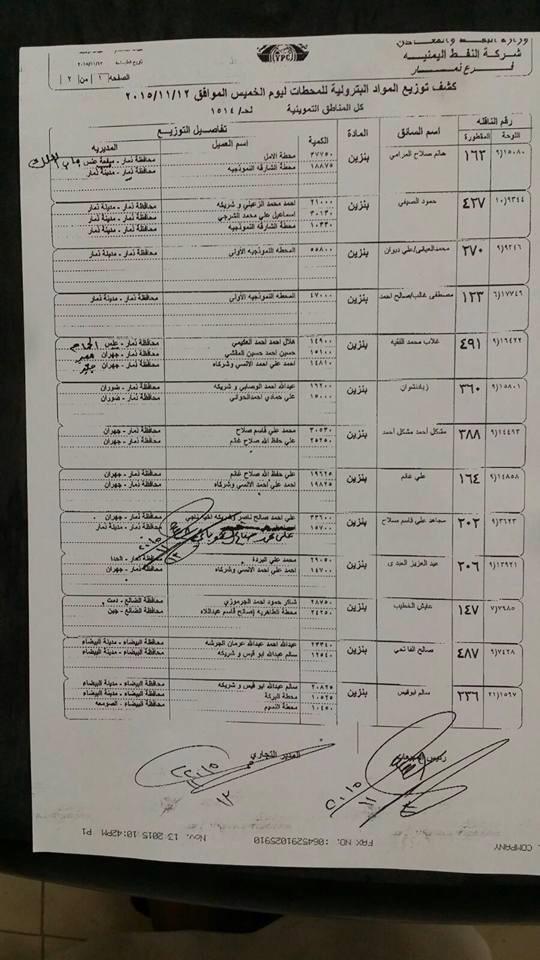 وزارة النفط والمعادن
شركة النفط اليمنية
فرع ذمار
YPC
٢٠١٥/١١/١٢
الصفحة ١ من ٢
كشف توزيع المواد البترولية للمحطات ليوم الخميس الموافق ٢٠١٥/١١/١٢
كل المناطق التموينية لحـ/ ١٥١٤
رقم الناقله اسم السائق المادة تفاصيل التوزيع
اللوحة المقطورة الكمية اسم العميل المديريه
٩\١٥٠٨٠ ١٦٣ حاتم صلاح المرامي بنزين ٣٧٧٥٠ محطة الامل محافظة ذمار - ميفعة عنس
١٨٨٧٥ محطة الشارقه النموذجيه محافظة ذمار - مدينة ذمار
١٠\٩٣٤٤ ٤٢٧ حمود الصيفي بنزين ٢١٠٠٠ احمد محمد الزعبلي و شريكه محافظة ذمار - مدينة ذمار
٣٠١٣٠ اسماعيل علي محمد الشرجي محافظة ذمار - مدينة ذمار
١٠٣٣٠ محطة الشارقه النموذجيه محافظة ذمار - مدينة ذمار
٩\٩٢٤٦ ٢٧٠ محمدالعياني/علي ديوان بنزين ٥٥٨٠٠ المحطه النموذجيه الأولى محافظة ذمار - مدينة ذمار
٦\١٧٧٤٦ ١٢٣ مصطفى غالب/صالح احمد بنزين ٤٧٠٠٠ المحطه النموذجيه الأولى محافظة ذمار - مدينة ذمار
٩\١٦٤٢٢ ٤٩١ غلاب محمد الفقيه بنزين ١٤٩٠٠ هلال احمد احمد العكيمي محافظة ذمار - عنس
١٥١٠٠ حسين احمد حسين المقشي محافظة ذمار - جهران
١٤٨١٠ احمد علي احمد الانسي وشركاه محافظة ذمار - جهران
٩\١٥٨٠١ ٣٦٠ زيادنشوان بنزين ١٦٢٠٠ عبدالله احمد الوصابي و شريكه محافظة ذمار - ضوران
١٥٠٠٠ علي حمادي احمدالحواني محافظة ذمار - ضوران
٩\١٤٤٩٣ ٣٨٨ مشكل أحمد مشكل أحمد بنزين ٣٠٥٣٠ محمد علي قاسم صلاح محافظة ذمار - جهران
٢٥٢٥٠ علي حفظ الله صلاح غانم محافظة ذمار - جهران
٩\١٤٨٥٨ ١٦٤ علي غانم بنزين ١٩٦٢٥ علي حفظ الله صلاح غانم محافظة ذمار - جهران
١٩٨٢٥ احمد علي احمد الانسي وشركاه محافظة ذمار - جهران
٩\٣٦٢٣ ٢٠٢ مجاهد علي قاسم صلاح بنزين ٣٣٦٠٠ علي احمد صالح ناصر وشريكه محافظة ذمار - جهران
١٥٧٠٠ محافظة ذمار - مدينة ذمار
٩\١٣٩٢١ ٢٠٦ عبد العزيز العبدي بنزين ٢٩٠٥٠ محمد علي البردة محافظة ذمار - الحدا
١٤٧٠٠ احمد علي احمد الانسي وشركاه محافظة ذمار - جهران
٧\٧٩٨٥ ١٤٧ عايش الخطيب بنزين ٢٨٧٥٠ شاكر حمود احمد الجرموزي محافظة الضالع - دمت
٢٤٢٥٠ محطة الظاهريه/صالح قاسم عبداللاه محافظة الضالع - جبن
٦\٧٤٢٨ ٤٨٧ صالح الفاتمي بنزين ٢٣٣٤٠ عبدالله احمد عبدالله عرمان الجرشه محافظة البيضاء - مدينة البيضاء
١٢٥٤٠ سالم عبدالله ابو قيس و شريكه محافظة البيضاء - مدينة البيضاء
٢١\١٥٦٧ ٢٣٦ سالم ابوقيس بنزين ٢٠٨٢٥ سالم عبدالله ابو قيس و شريكه محافظة البيضاء - مدينة البيضاء
١٠٥٢٥ محطة البركة محافظة البيضاء - مدينة البيضاء
١٠٤٥٠ محطة النسوم محافظة البيضاء - الصومعه
المدير التجاري
COMPANY FAX NO. :0645291025910 Nov. 13 2015 10:42PM P1